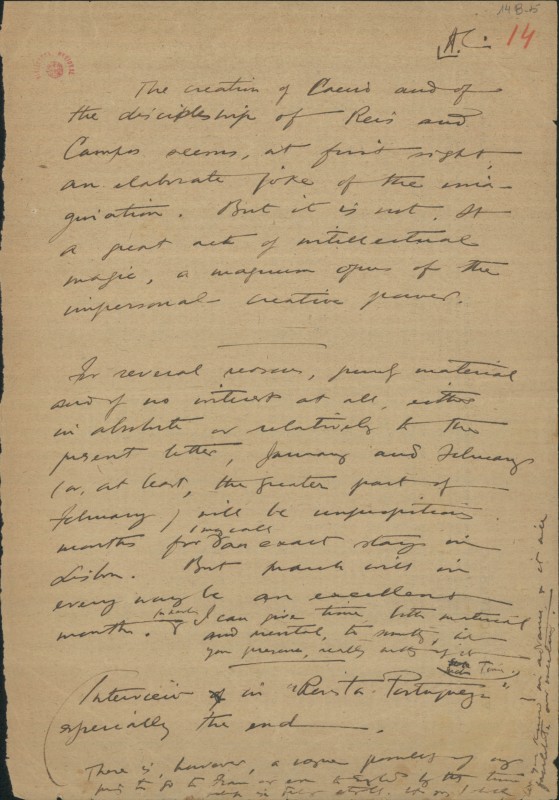 14B-5
A.C. 14
The creation of Caeiro and of
the discipleship of Reis and
Campos seems, at first sight,
an elaborate joke of the ima-
gination. But it is not. It
a great act of intellectual
magic, a magnum opus of the
impersonal creative power.
For several reasons, purely material
and of no interest at all, either
in absolute or relatively to the
present letter, January and February
(or, at least, the greater part of
February) will be unpropitious
months for an exact stay in
Lisbon. But March will in
every way be an excellent
month. I can give time, both material
and mental, to
your presence, really of it
Interview in "Revista Portuguesa",
especially the end
There is, however, a vague possibility of my
to go to or even to by this time
in advance & it will
facilitate